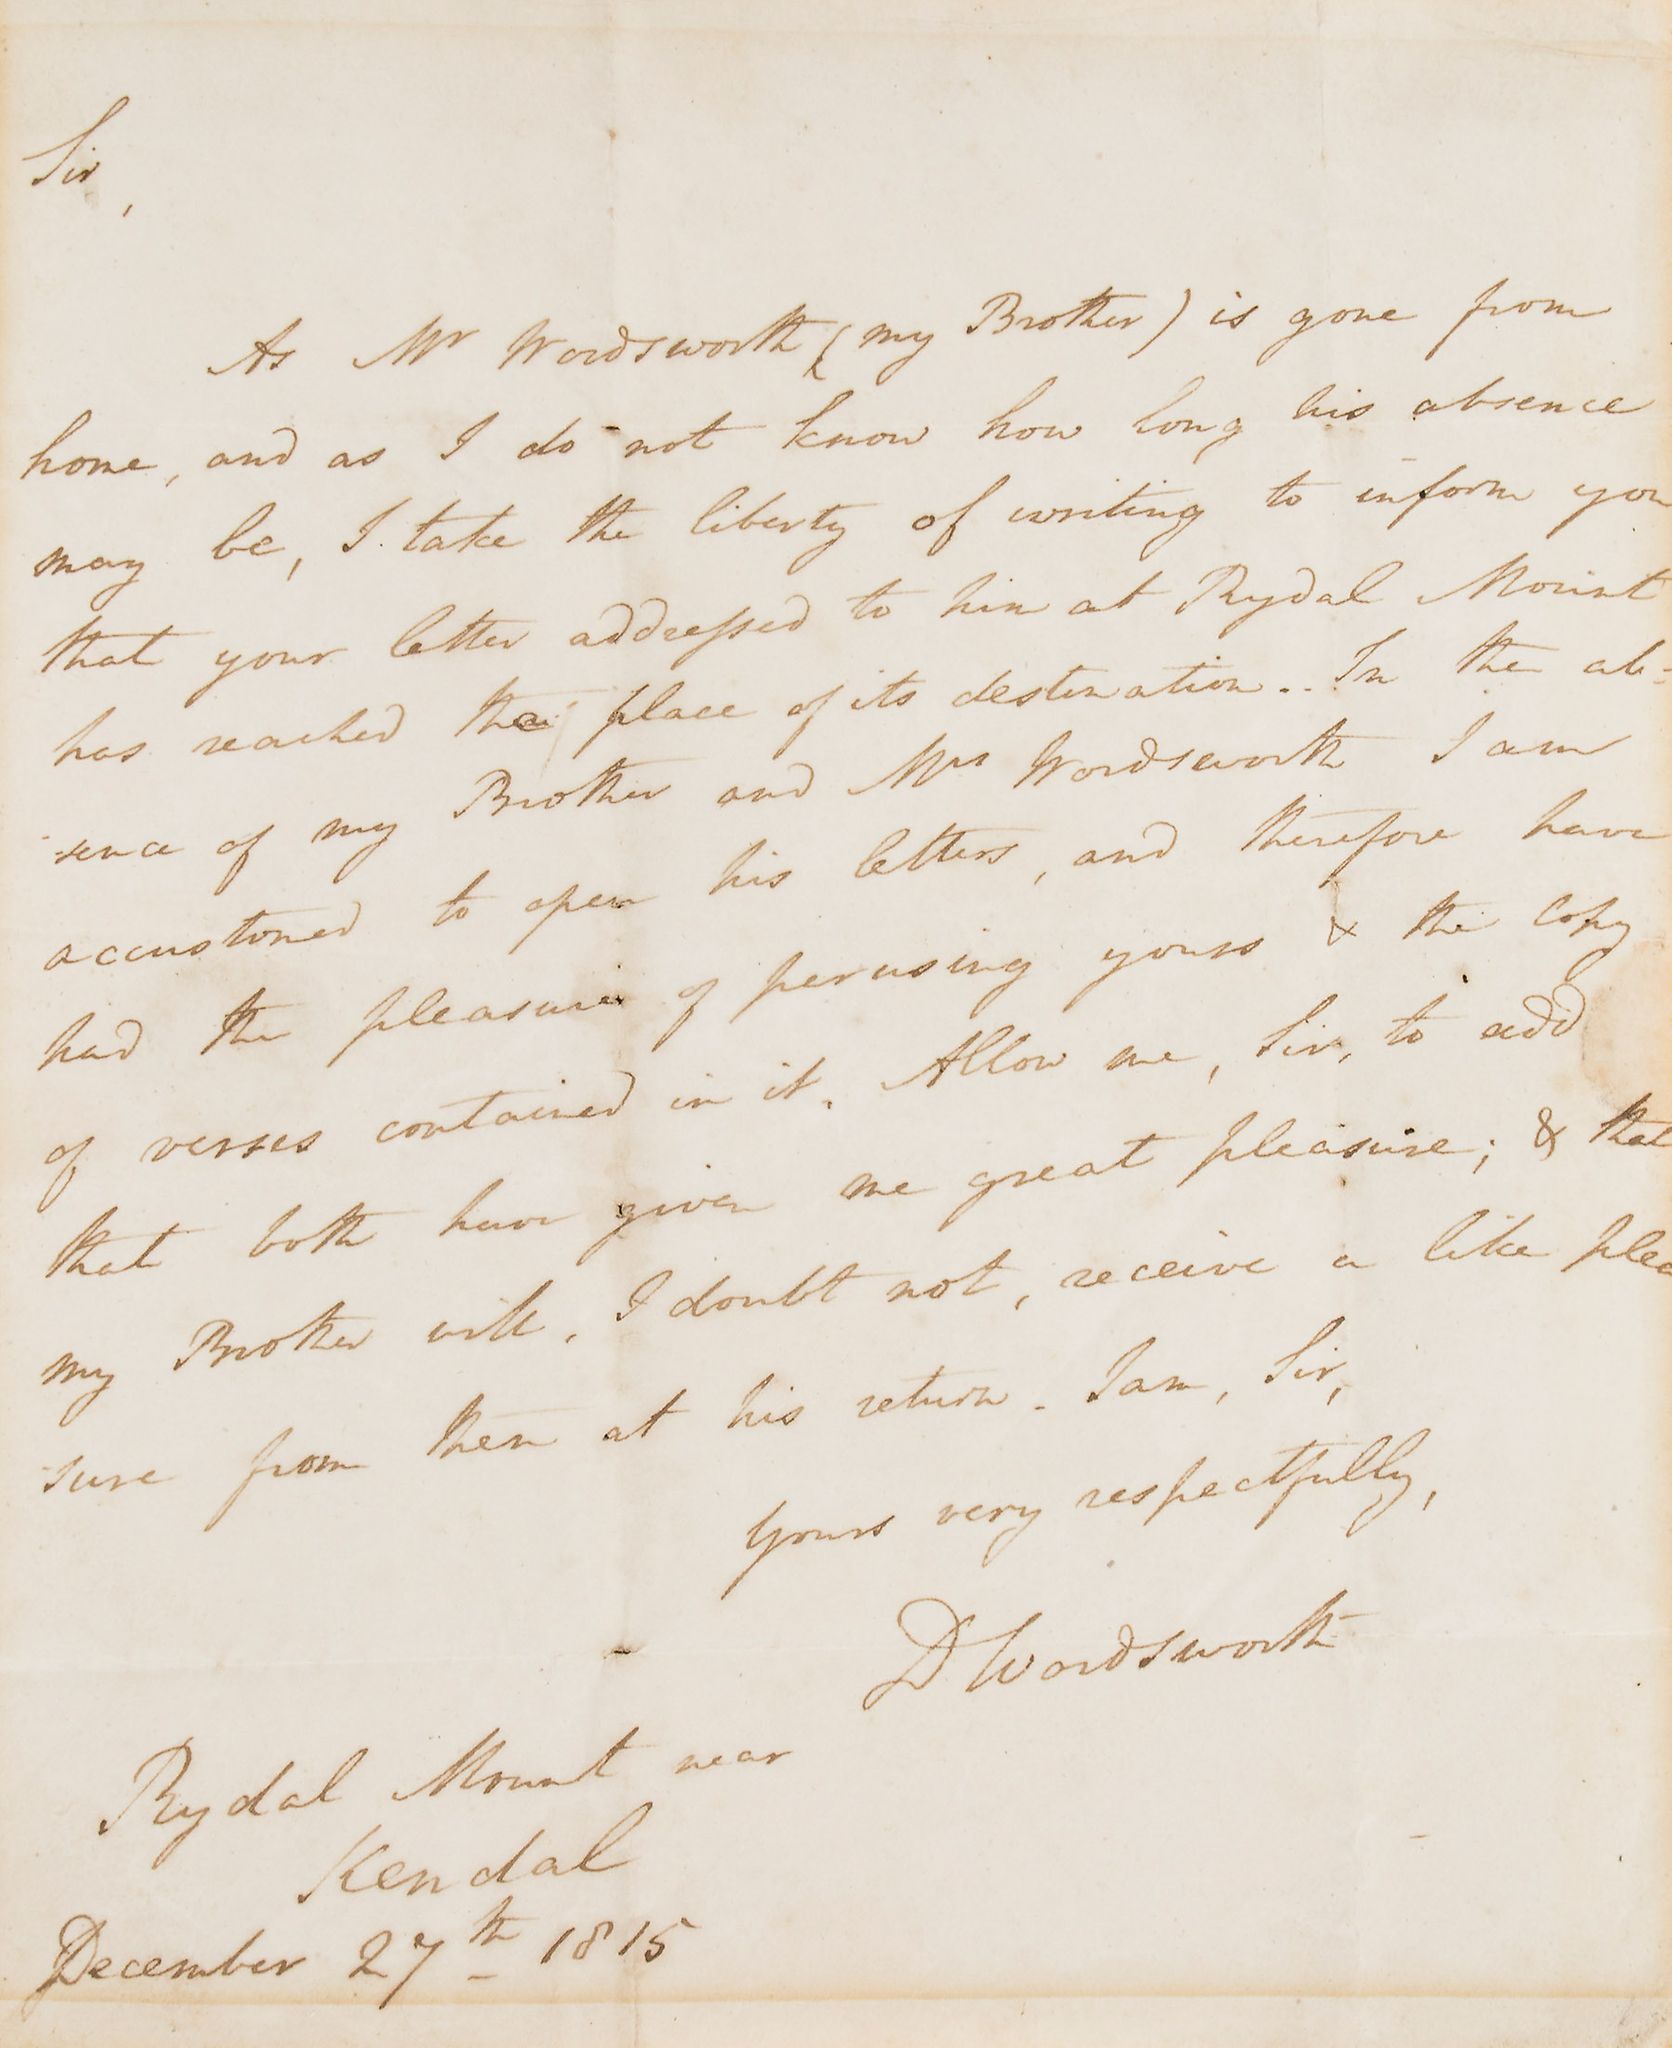 Sir,
As Mr Wordsworth (my Brother) is gone from
home, and as I do not know how long his absence
may be, I take the liberty of writing to inform you
that your letter addressed to him at Rydal Mount
has reached the place of its destination.. In the ab=
-sence of my Brother and Mrs Wordsworth I am
accustomed to open his letters, and therefore have
had the pleasure of perusing yours & the copy
of verses contained in it. Allow me, Sir, to add
that both have given me great pleasure; & that
my Brother will, I doubt not, receive a like plea
-sure from them at his return. I am, Sir,
Yours very respectfully,
D Wordsworth
Rydal Mount near
Kendal
December 27th 1815